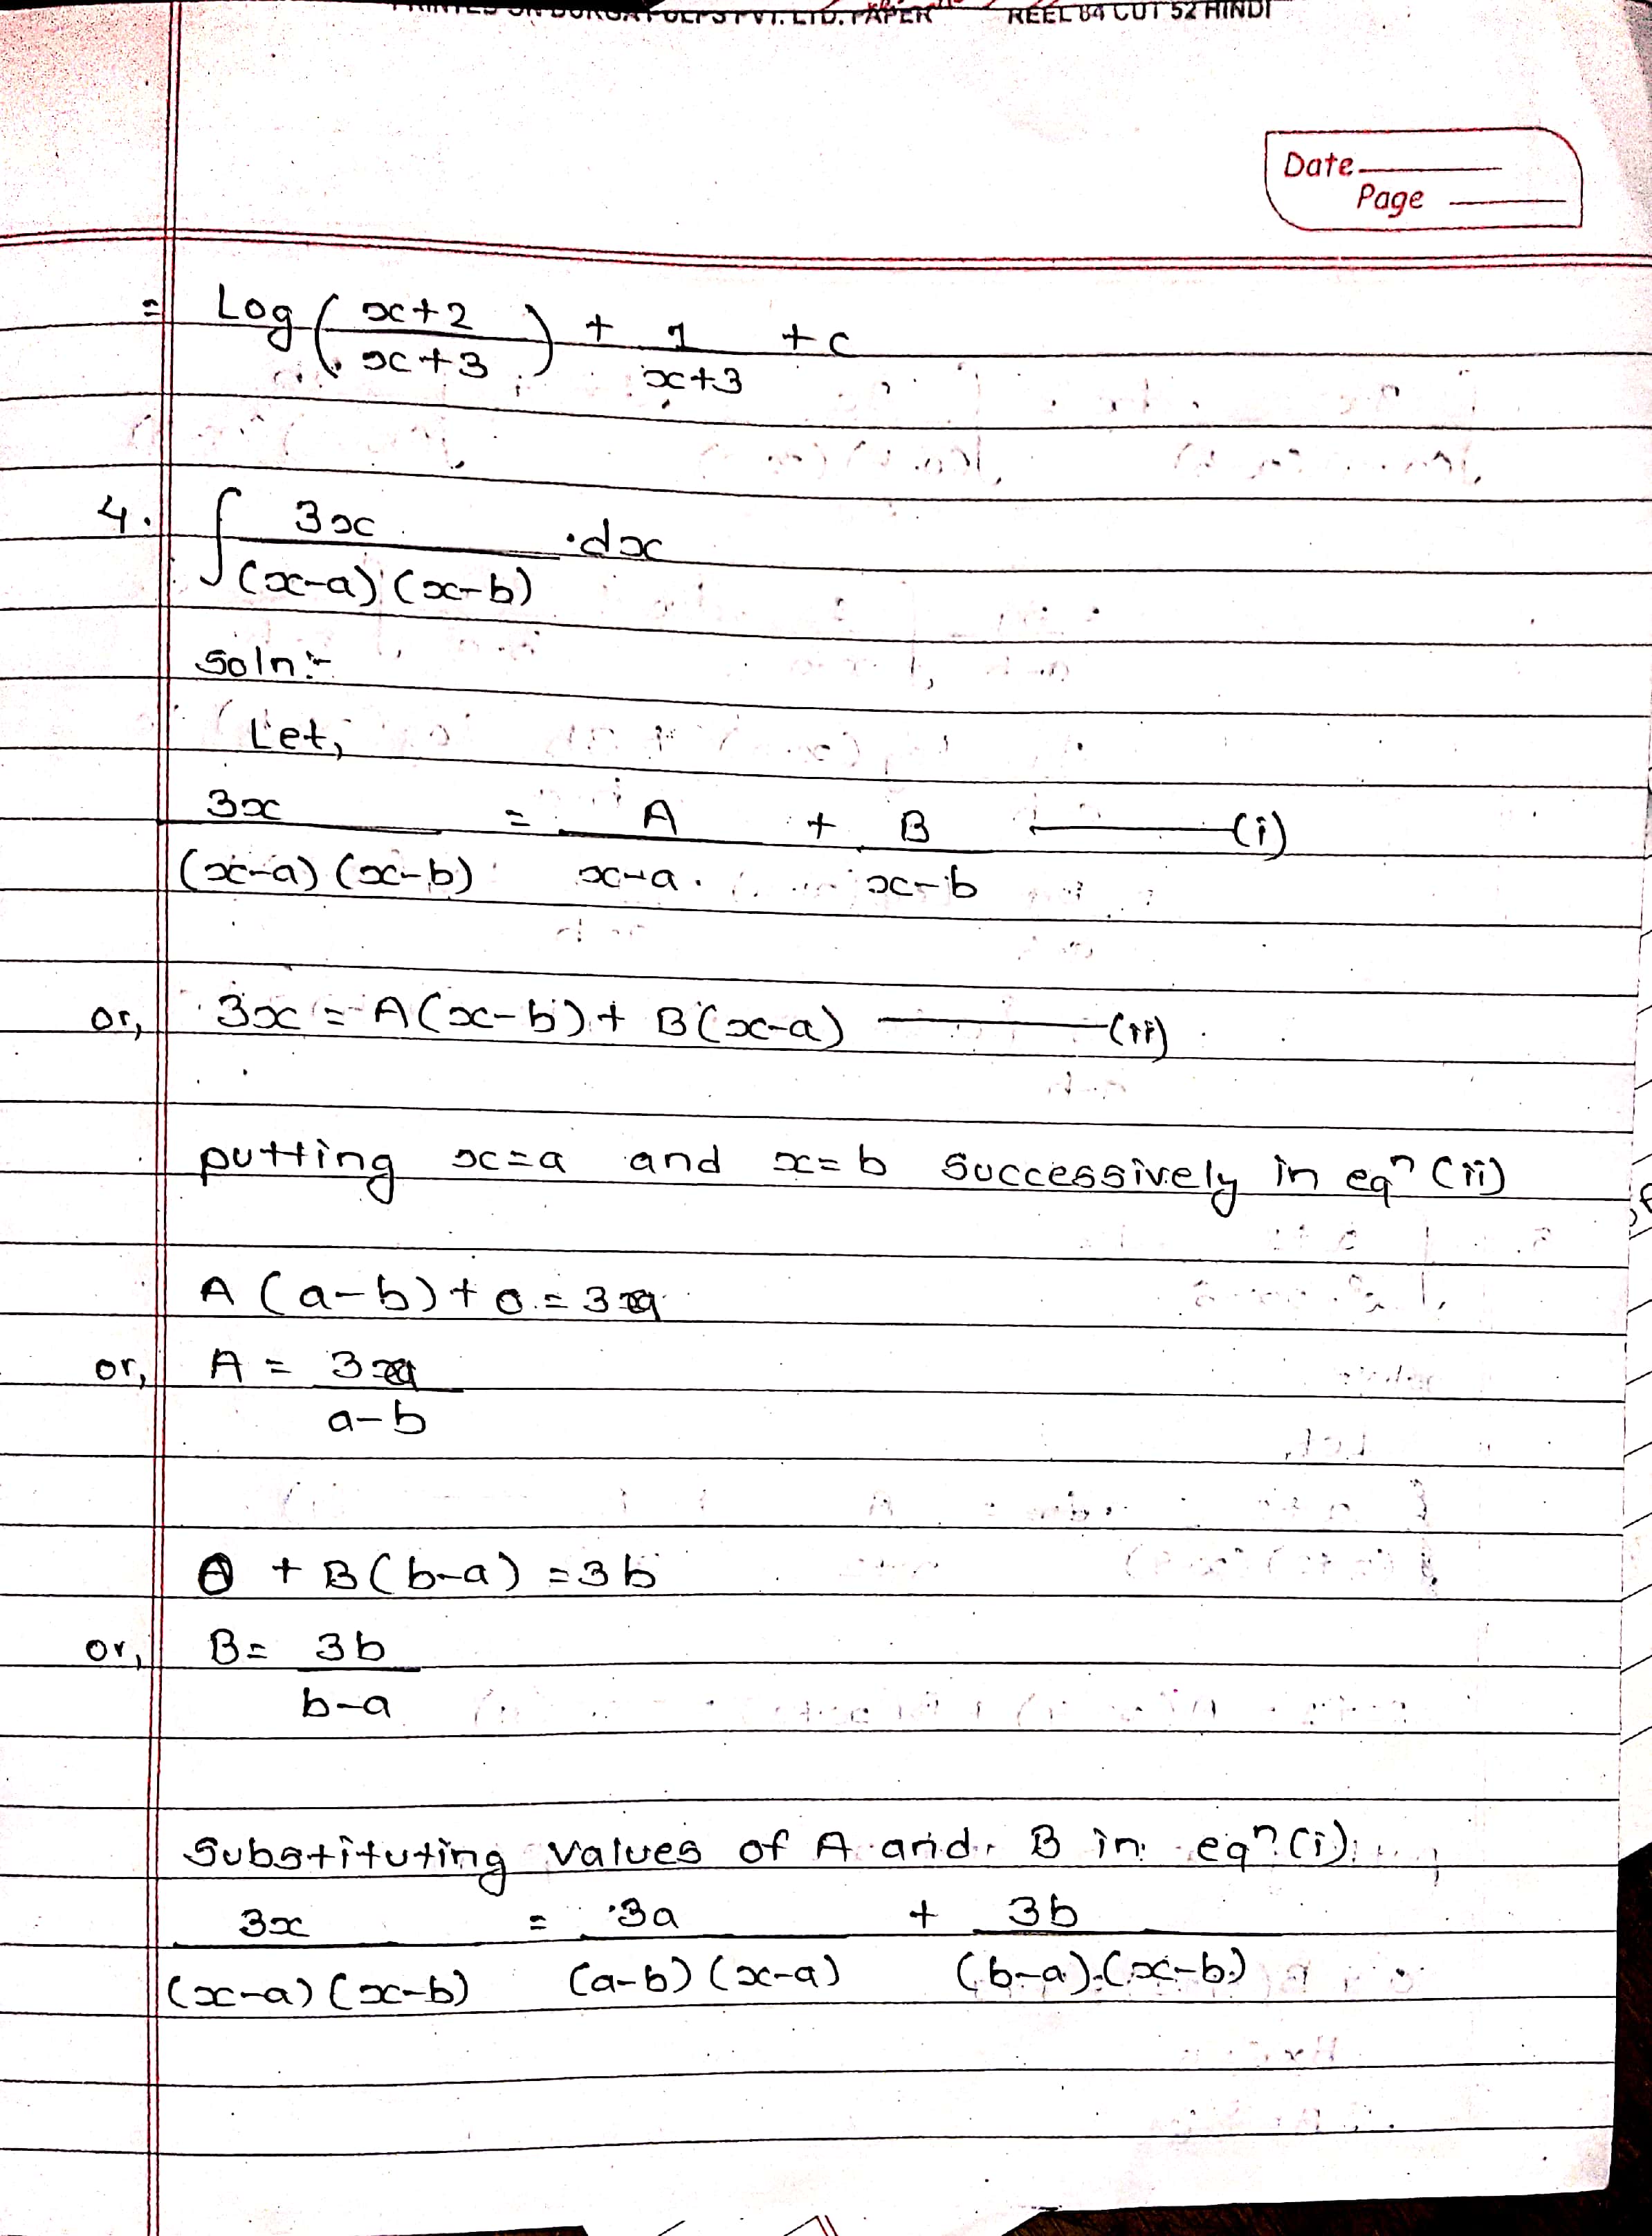 REEL 84 CUT 52 HINDI
Date
Page
= Log (x+2 / x+3) + 1 / x+3 + c
4. ∫ 3x / (x-a) (x-b) .dx
Soln:-
Let,
3x / (x-a) (x-b) = A / x-a + B / x-b ——— (i)
or, 3x = A(x-b) + B(x-a) ——— (ii)
putting x=a and x=b successively in eqⁿ (ii)
A (a-b) + 0 = 3a
or, A = 3a / a-b
0 + B(b-a) = 3b
or, B = 3b / b-a
Substituting values of A and B in eqⁿ (i),
3x / (x-a) (x-b) = 3a / (a-b) (x-a) + 3b / (b-a) (x-b)